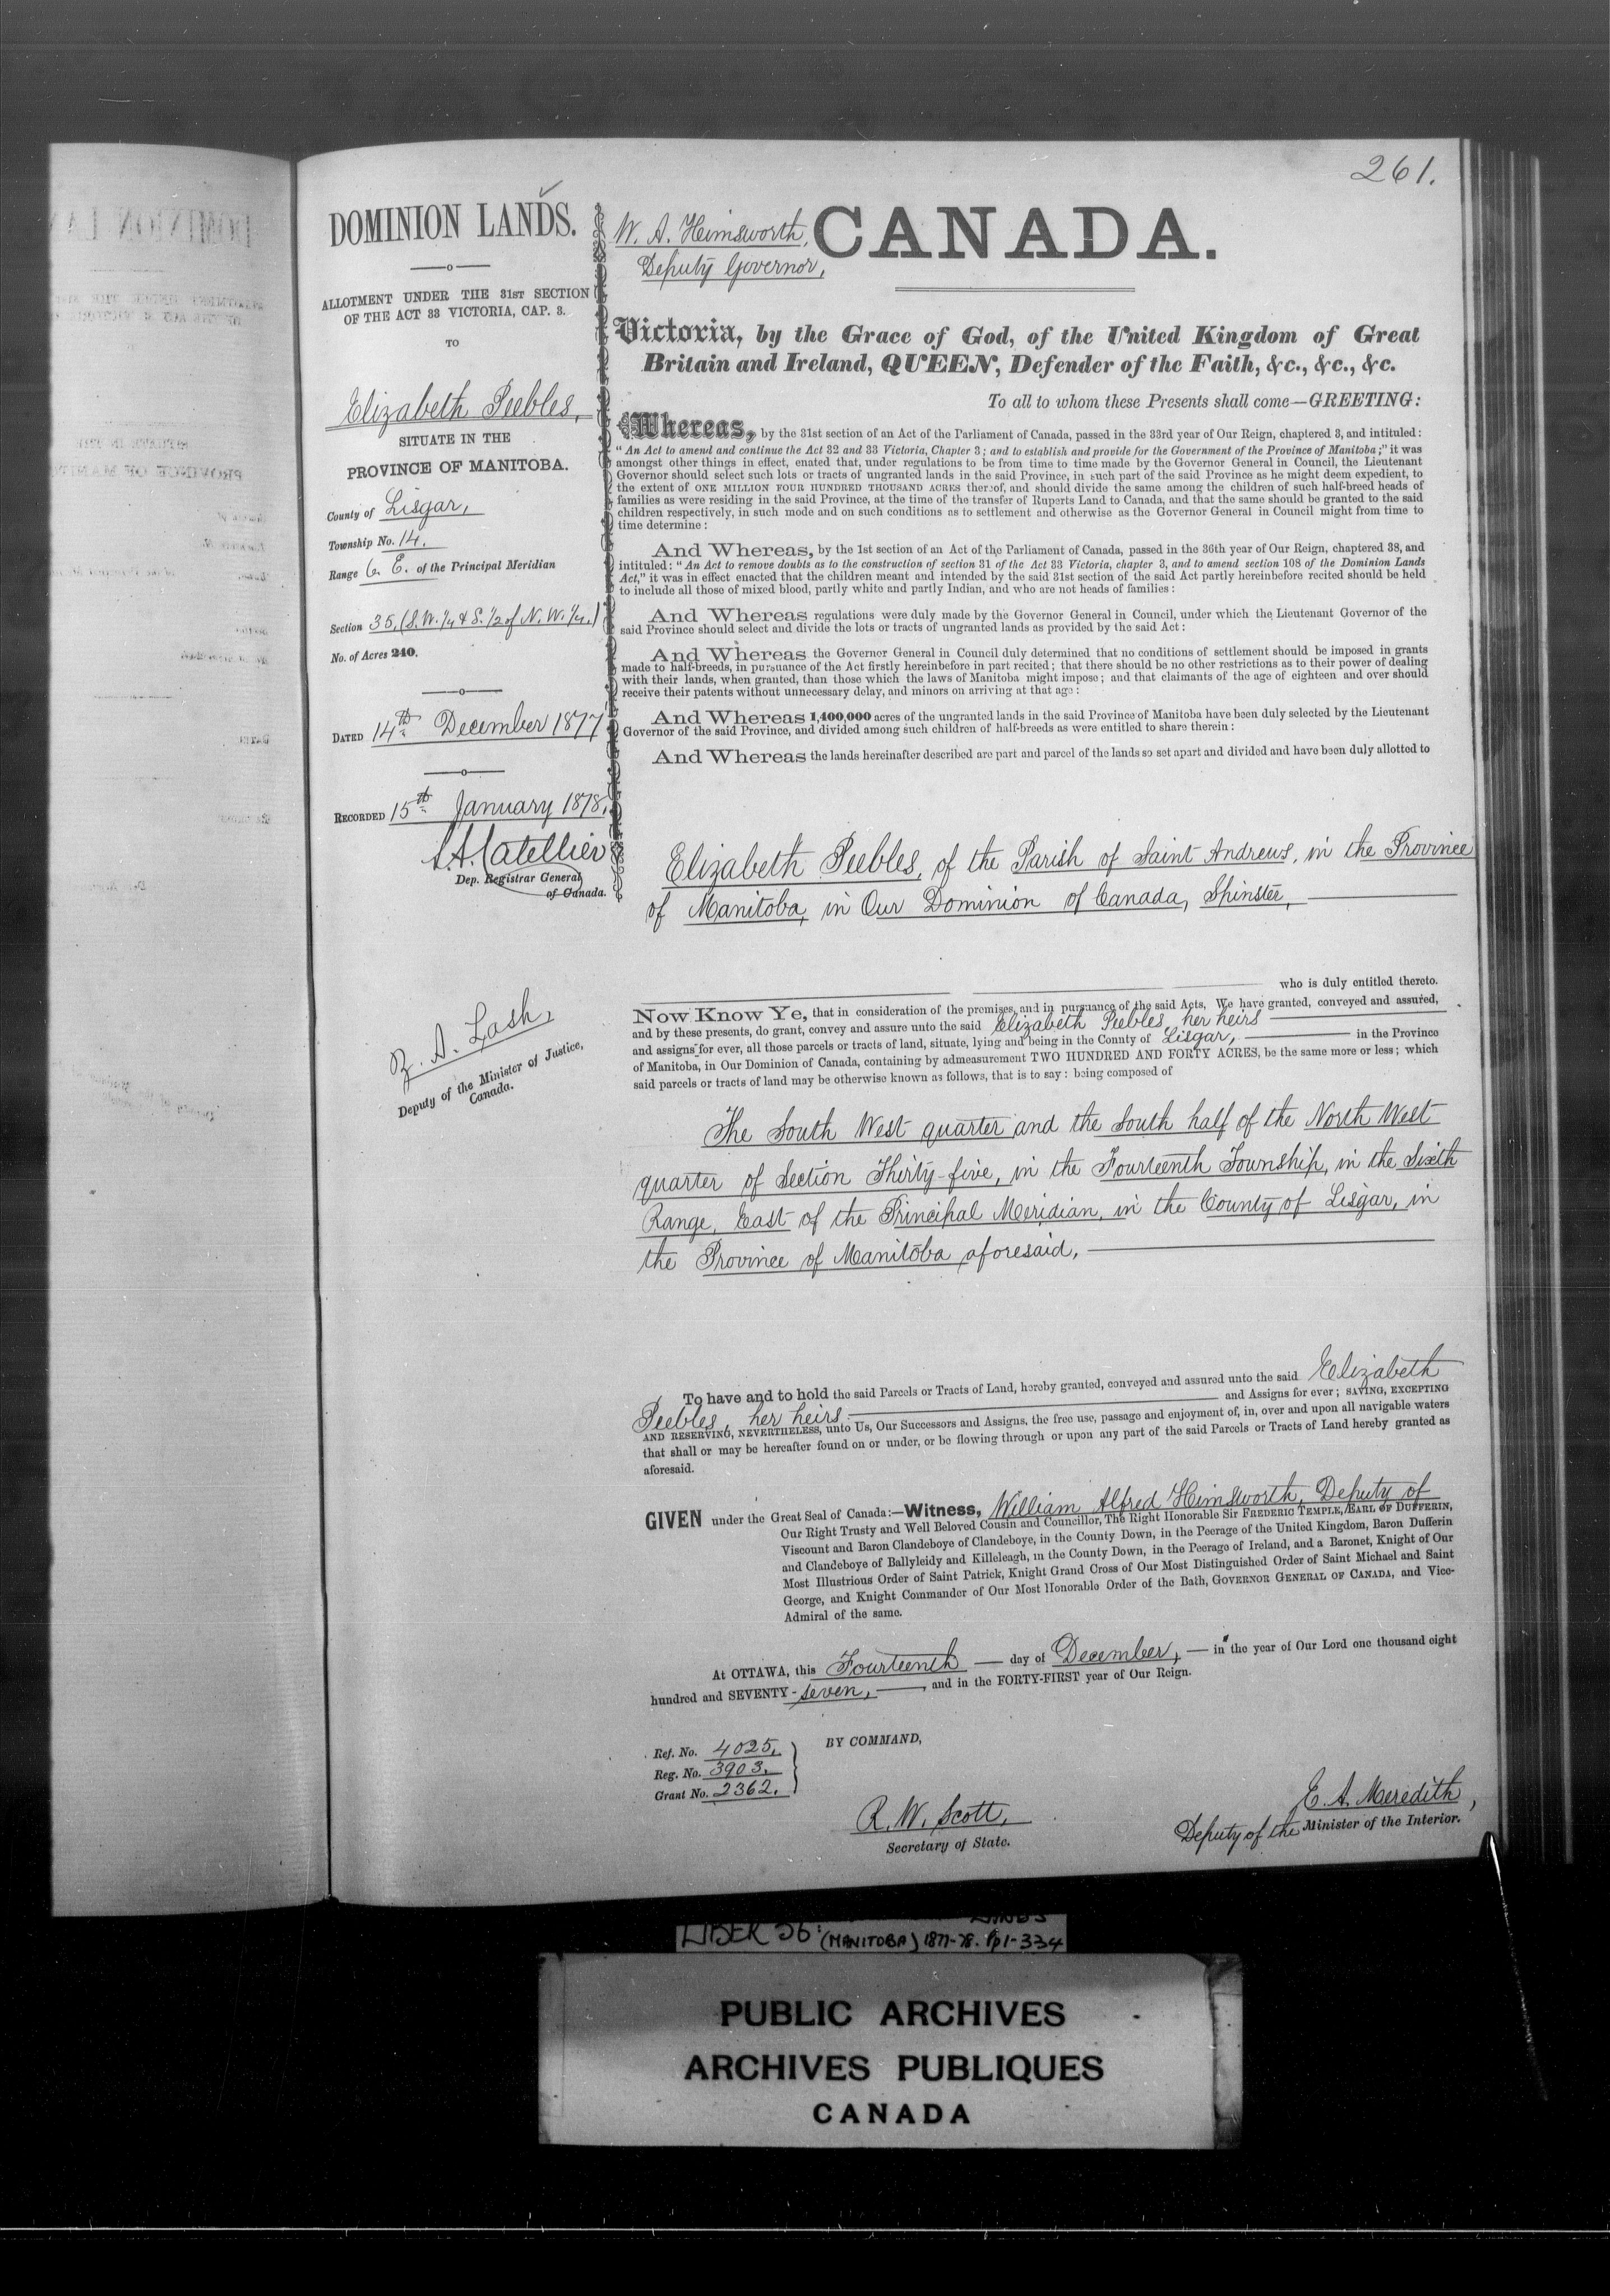 261.
DOMINION LANDS.
ALLOTMENT UNDER THE 31ST SECTION
OF THE ACT 33 VICTORIA, CAP. 3.
TO
Elizabeth Peebles,
SITUATE IN THE
PROVINCE OF MANITOBA.
County of Lisgar,
Township No. 14.
Range 6. E. of the Principal Meridian
Section 35, (S.W. 1/4 & S. 1/2 of N.W. 1/4.)
No. of Acres 240.
DATED 14th December 1877
RECORDED 15th January 1878,
Dep. Registrar General
of Canada.
Z. A. Lash,
Deputy of the Minister of Justice,
Canada.
W. A. Himsworth,
Deputy Governor,
CANADA.
Victoria, by the Grace of God, of the United Kingdom of Great
Britain and Ireland, QUEEN, Defender of the Faith, &c., &c., &c.
To all to whom these Presents shall come—GREETING:
Whereas, by the 31st section of an Act of the Parliament of Canada, passed in the 33rd year of Our Reign, chaptered 3, and intituled:
"An Act to amend and continue the Act 32 and 33 Victoria, Chapter 3; and to establish and provide for the Government of the Province of Manitoba;" it was
amongst other things in effect, enated that, under regulations to be from time to time made by the Governor General in Council, the Lieutenant
Governor should select such lots or tracts of ungranted lands in the said Province, in such part of the said Province as he might deem expedient, to
the extent of ONE MILLION FOUR HUNDRED THOUSAND ACRES thereof, and should divide the same among the children of such half-breed heads of
families as were residing in the said Province, at the time of the transfer of Ruperts Land to Canada, and that the same should be granted to the said
children respectively, in such mode and on such conditions as to settlement and otherwise as the Governor General in Council might from time to
time determine:
And Whereas, by the 1st section of an Act of the Parliament of Canada, passed in the 36th year of Our Reign, chaptered 38, and
intituled: "An Act to remove doubts as to the construction of section 31 of the Act 33 Victoria, chapter 3, and to amend section 108 of the Dominion Lands
Act," it was in effect enacted that the children meant and intended by the said 31st section of the said Act partly hereinbefore recited should be held
to include all those of mixed blood, partly white and partly Indian, and who are not heads of families:
And Whereas regulations were duly made by the Governor General in Council, under which the Lieutenant Governor of the
said Province should select and divide the lots or tracts of ungranted lands as provided by the said Act:
And Whereas the Governor General in Council duly determined that no conditions of settlement should be imposed in grants
made to half-breeds, in pursuance of the Act firstly hereinbefore in part recited; that there should be no other restrictions as to their power of dealing
with their lands, when granted, than those which the laws of Manitoba might impose; and that claimants of the age of eighteen and over should
receive their patents without unnecessary delay, and minors on arriving at that age:
And Whereas 1,400,000 acres of the ungranted lands in the said Province of Manitoba have been duly selected by the Lieutenant
Governor of the said Province, and divided among such children of half-breeds as were entitled to share therein:
And Whereas the lands hereinafter described are part and parcel of the lands so set apart and divided and have been duly allotted to
Elizabeth Peebles, of the Parish of Saint Andrews, in the Province
of Manitoba, in Our Dominion of Canada, Spinster,
who is duly entitled thereto.
Now Know Ye, that in consideration of the premises, and in pursuance of the said Acts, We have granted, conveyed and assured,
and by these presents, do grant, convey and assure unto the said Elizabeth Peebles, her heirs
and assigns for ever, all those parcels or tracts of land, situate, lying and being in the County of Lisgar, in the Province
of Manitoba, in Our Dominion of Canada, containing by admeasurement TWO HUNDRED AND FORTY ACRES, be the same more or less; which
said parcels or tracts of land may be otherwise known as follows, that is to say: being composed of
The South West quarter and the South half of the North West
quarter of Section Thirty-five, in the Fourteenth Township, in the Sixth
Range, East of the Principal Meridian, in the County of Lisgar, in
the Province of Manitoba aforesaid,
To have and to hold the said Parcels or Tracts of Land, hereby granted, conveyed and assured unto the said Elizabeth
Peebles, her heirs and Assigns for ever; SAVING, EXCEPTING
AND RESERVING, NEVERTHELESS, unto Us, Our Successors and Assigns, the free use, passage and enjoyment of, in, over and upon all navigable waters
that shall or may be hereafter found on or under, or be flowing through or upon any part of the said Parcels or Tracts of Land hereby granted as
aforesaid.
GIVEN under the Great Seal of Canada:—Witness, William Alfred Himsworth, Deputy of
Our Right Trusty and Well Beloved Cousin and Councillor, The Right Honorable Sir FREDERIC TEMPLE, EARL OF DUFFERIN,
Viscount and Baron Clandeboye of Clandeboye, in the County Down, in the Peerage of the United Kingdom, Baron Dufferin
and Clandeboye of Ballyleidy and Killeleagh, in the County Down, in the Peerage of Ireland, and a Baronet, Knight of Our
Most Illustrious Order of Saint Patrick, Knight Grand Cross of Our Most Distinguished Order of Saint Michael and Saint
George, and Knight Commander of Our Most Honorable Order of the Bath, GOVERNOR GENERAL OF CANADA, and Vice-
Admiral of the same.
At OTTAWA, this Fourteenth day of December, in the year of Our Lord one thousand eight
hundred and SEVENTY-seven, and in the FORTY-FIRST year of Our Reign.
Ref. No. 4025,
Reg. No. 3903,
Grant No. 2362,
BY COMMAND,
R. W. Scott,
Secretary of State.
E. A. Meredith,
Deputy of the Minister of the Interior.
LIBER 56: LANDS
(MANITOBA) 1877-78. Pp 1-334
PUBLIC ARCHIVES
ARCHIVES PUBLIQUES
CANADA